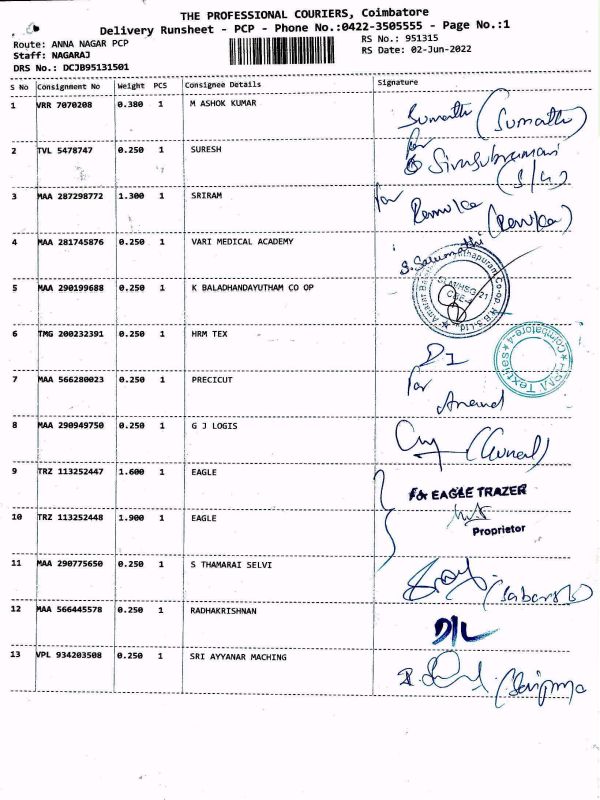 THE PROFESSIONAL COURIERS, Coimbatore
Delivery Runsheet - PCP - Phone No.:0422-3505555 - Page No.:1
Route: ANNA NAGAR PCP
RS No.: 951315
Staff: NAGARAJ
RS Date: 02-Jun-2022
DRS No.: DCJB95131501
S No Consignment No Weight PCS Consignee Details Signature
1 VRR 7070208 0.380 1 M ASHOK KUMAR
Sumathi (Sumathi)
2 TVL 5478747 0.250 1 SURESH
for Sivasubramani
3 MAA 287298772 1.300 1 SRIRAM
for Renuka (Renuka)
4 MAA 281745876 0.250 1 VARI MEDICAL ACADEMY
S. Sarumathi
5 MAA 290199688 0.250 1 K BALADHANDAYUTHAM CO OP
6 TMG 200232391 0.250 1 HRM TEX
Coimbatore-4
7 MAA 566280023 0.250 1 PRECICUT
for Anand
8 MAA 290949750 0.250 1 G J LOGIS
9 TRZ 113252447 1.600 1 EAGLE
For EAGLE TRAZER
10 TRZ 113252448 1.900 1 EAGLE
Proprietor
11 MAA 290775650 0.250 1 S THAMARAI SELVI
12 MAA 566445578 0.250 1 RADHAKRISHNAN
D/L
13 VPL 934203508 0.250 1 SRI AYYANAR MACHING